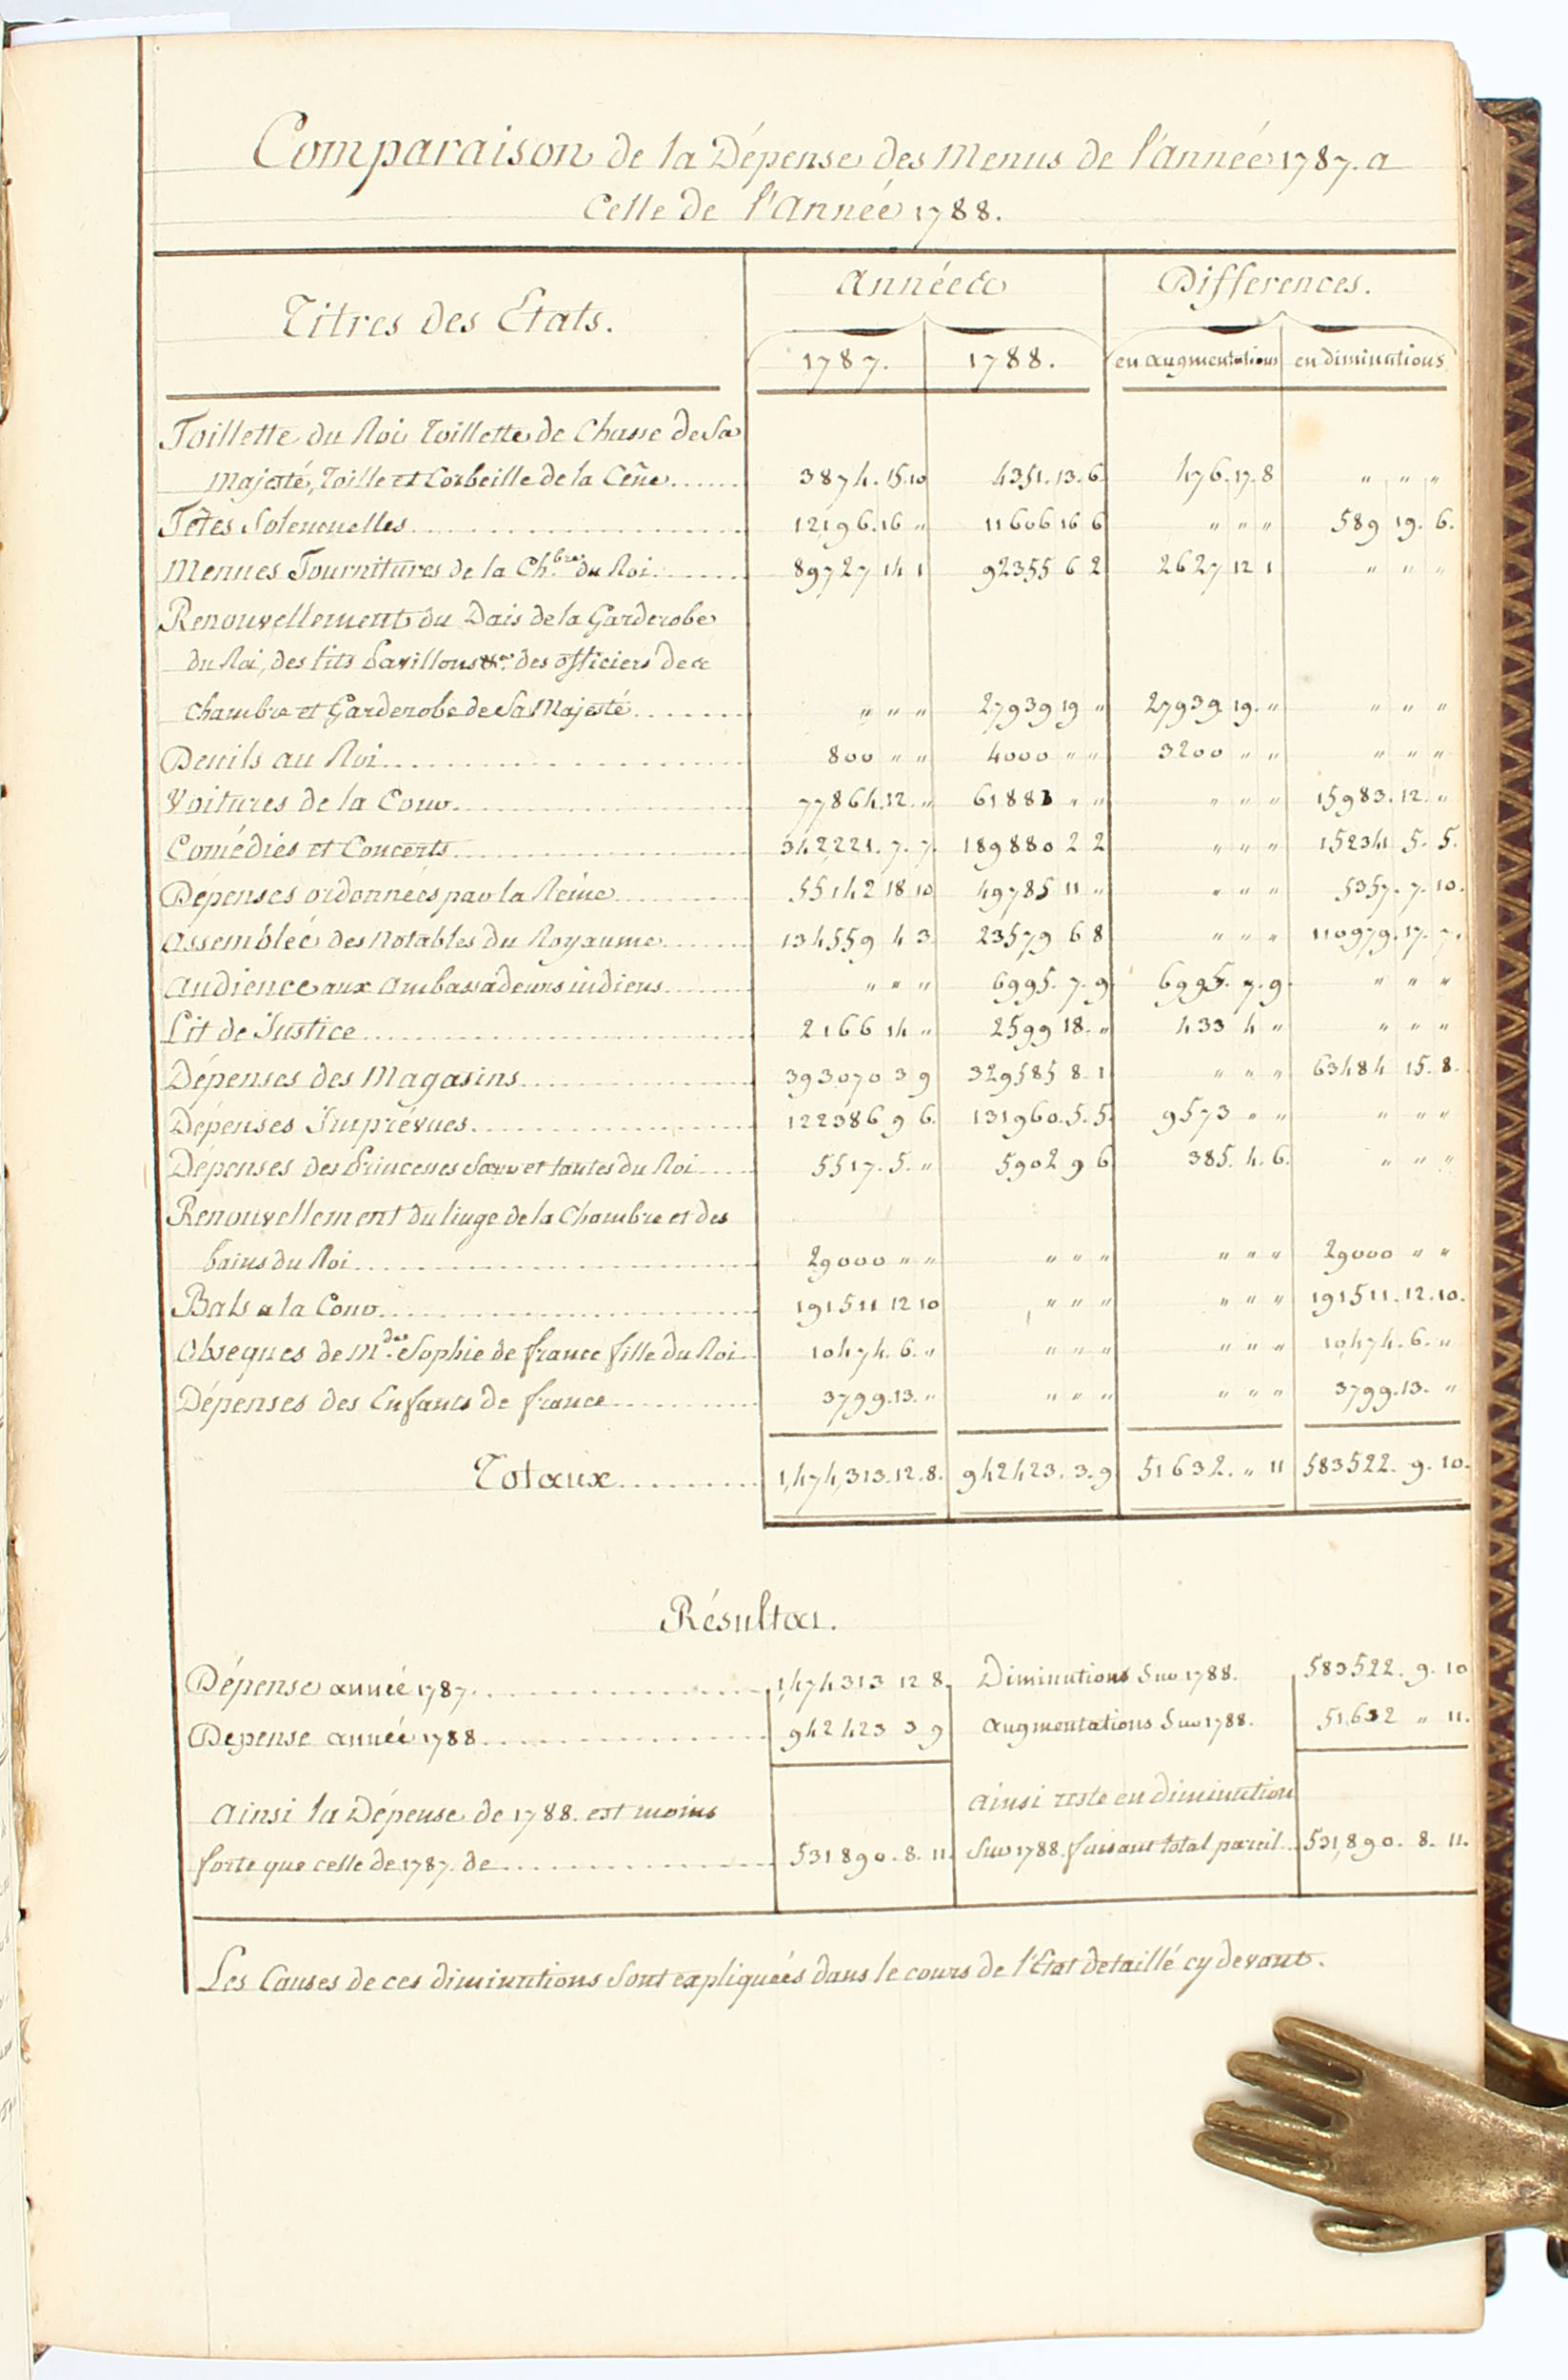 Comparaison de la Dépense des Menus de l'année 1787. a
Celle de l'Année 1788.
Titres des Etats.
Années
Differences.
1787.
1788.
en augmentations
en diminutions
Toillette du Roi Toillette de Chasse de Sa
Majesté, Toille et Corbeille de la Cêne ...... 3874. 15. 10 4351. 13. 6 476. 17. 8 " " "
Fêtes Solennelles ...... 12196. 16 " 11606 16 6 " " " 589 19. 6.
Menues Fournitures de la Ch.bre du Roi ...... 89727 14 1 92355 6 2 2627 12 1 " " "
Renouvellement du Dais de la Garderobe
du Roi, des lits Pavillons &a. des officiers de
chambre et Garderobe de Sa Majesté ...... " " " 27939 19 " 27939. 19. " " " "
Deuils au Roi ...... 800 " " 4000 " " 3200 " " " " "
Voitures de la Cour ...... 77864. 12. " 61881 " " " " " 15983. 12. "
Comédies et Concerts ...... 342221. 7. 7. 189880 2 2 " " " 15234 5. 5.
Dépenses ordonnées par la Reine ...... 55142 18 10 49785 11 " " " " 5357. 7. 10.
Assemblée des Notables du Royaume ...... 134559 4 3 23579 6 8 " " " 110979. 17. 7.
Audience aux Ambassadeurs indiens ...... " " " 6995. 7. 9 6995. 7. 9. " " "
Lit de Justice ...... 2166 14 " 2599 18. " 433 4 " " " "
Dépenses des Magasins ...... 393070 3 9 329585 8 1 " " " 63484 15. 8.
Dépenses Imprévues ...... 122386 9 6. 131960. 5. 5. 9573 " " " " "
Dépenses des Princesses Sœur et tantes du Roi ...... 5517. 5. " 5902 9 6 385. 4. 6. " " "
Renouvellement du linge de la Chambre et des
bains du Roi ...... 29000 " " " " " " " " 29000 " "
Bals a la Cour ...... 191511 12 10 " " " " " " 191511. 12. 10.
Obseques de M.de Sophie de france fille du Roi ...... 10474. 6. " " " " " " " 10,474. 6. "
Dépenses des Enfants de france ...... 3799. 13. " " " " " " " 3799. 13. "
Totaux ...... 1,474,313. 12. 8. 942423. 3. 9 51632. " 11 583522. 9. 10.
Résultat.
Dépense année 1787 ...... 1,474313 12 8. Diminutions Sur 1788. 583522. 9. 10
Depense année 1788 ...... 942423 3 9 Augmentations Sur 1788. 51,632 " 11.
Ainsi la Dépense de 1788. est moins
forte que celle de 1787. de ...... 531890. 8. 11.
Ainsi reste en diminution
Sur 1788. faisant total pareil ... 531,890. 8. 11.
Les Causes de ces diminutions Sont expliquées dans le cours de l'Etat detaillé cy devant.